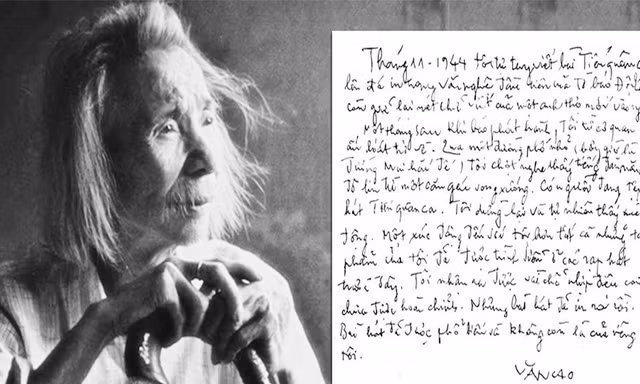 Tháng 11-1944 tôi tự tay viết bài Tiến quân ca
lên đá in trang văn nghệ đầu tiên của tờ báo Độc
còn giữ lại nét chữ viết của một anh thợ mới vào ng
Một tháng sau khi báo phát hành, tôi từ cơ quan
ấn loát trở về. Qua một đường phố nhỏ (bây giờ là
, tôi chợt nghe thấy tiếng đàn măn
từ một căn gác vọng xuống. Có người đang tập
hát Tiến quân ca. Tôi dừng lại và tự nhiên thấy xúc
động. Một xúc động đến với tôi hơn tất cả những tác
phẩm của tôi đã được trình diễn ở các rạp hát
trước đây. Tôi nhận ra được vài chỗ nhịp điệu còn
chưa được hoàn chỉnh. Nhưng bài hát đã in ra rồi.
Bài hát đã được phổ biến và không còn là của riêng
rồi.
VĂN CAO